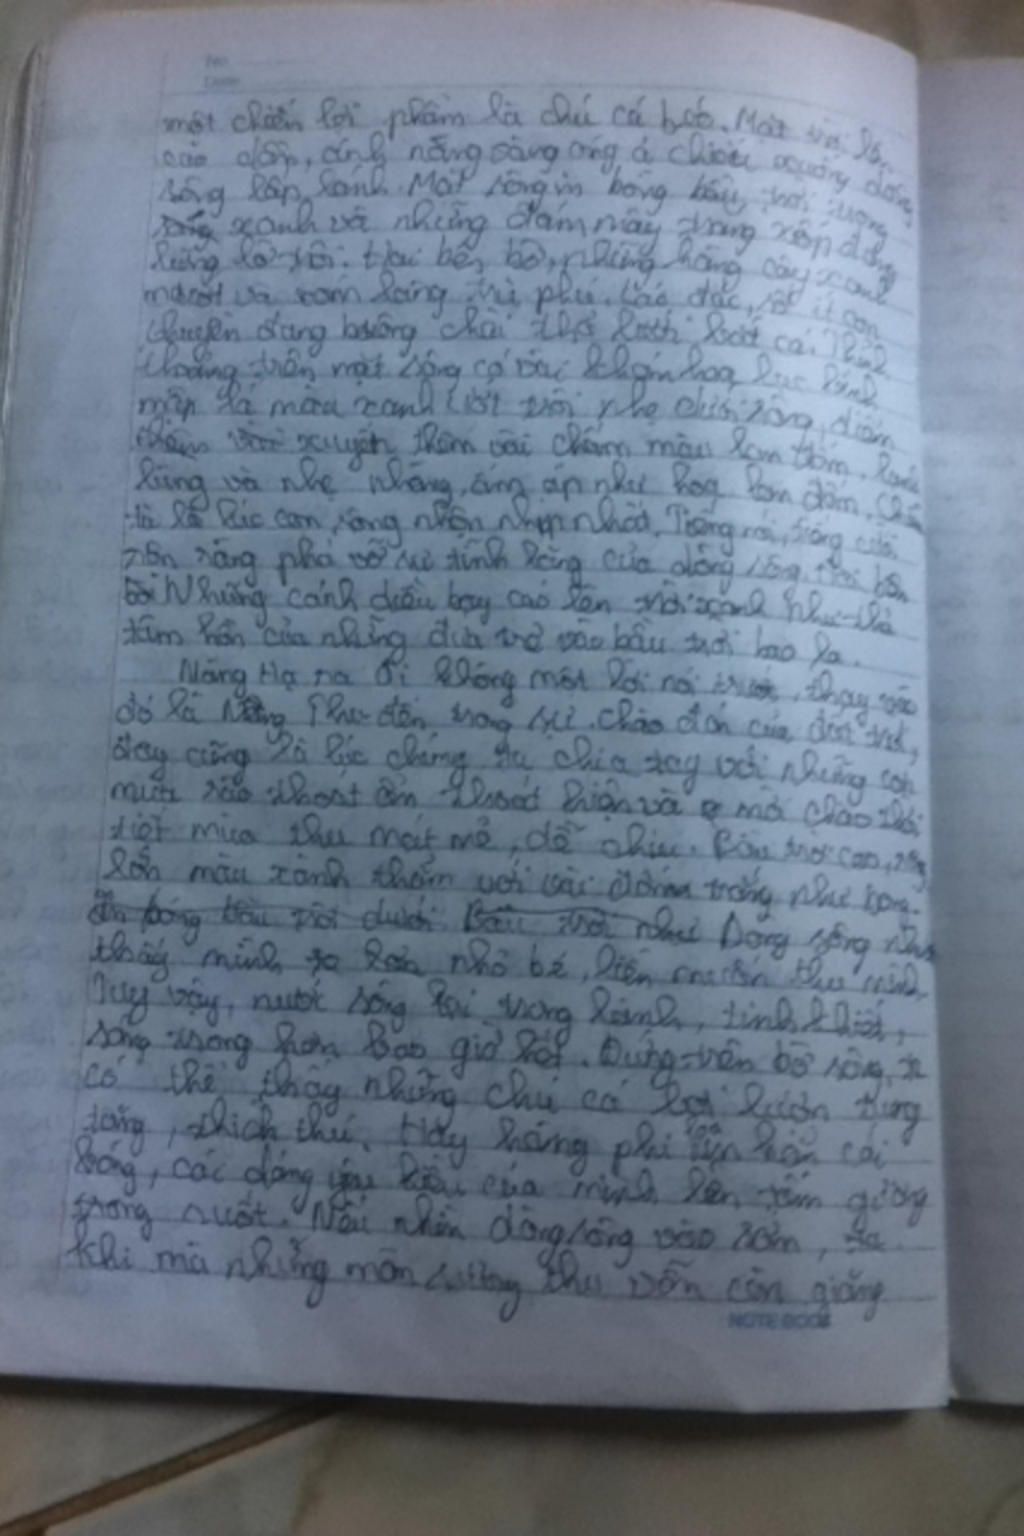 No.
Date
một chiến lợi phẩm là chú cá béo. Mặt trời lên
cao dần, ánh nắng vàng óng ả chiếu xuống dòng
sông lấp lánh. Mặt sông in bóng bầu trời trong
xanh và những đám mây trắng xốp đang
lững lờ trôi. Hai bên bờ, những hàng cây xanh
mướt và xóm làng trù phú. Lác đác, số ít con
thuyền đang buông chài thả lưới bắt cá. Thỉnh
thoảng trên mặt sông có vài khóm hoa lục bình
mập lá màu xanh lướt trôi nhẹ dưới sông, điểm
xuyết thêm vài chấm màu lam tím,
lùng và nhẹ nhàng, ấm áp như
là lúc con sông nhộn nhịp nhất. Tiếng nói, tiếng cười
rộn ràng phá vỡ sự tĩnh lặng của dòng sông. Hai bên
bờ Những cánh diều bay cao lên trời xanh như thả
tâm hồn của những đứa trẻ vào bầu trời bao la.
Nàng Hạ ra đi không một lời nói trước, thay vào
đó là Nàng Thu đến trong sự chào đón của đất trời,
đây cũng là lúc chúng ta chia tay với những cơn
mưa rào thoắt ẩn thoắt hiện và chào thời
tiết mùa thu mát mẻ, dễ chịu. Bầu trời cao, rộng
lớn màu xanh thẳm với vài đốm trắng như
bóng bầu trời dưới Bầu trời như Dòng sông như
thấy mình ta lớn nhỏ bé, liền muốn thu mình.
Tuy vậy, nước sông lại trong lành, tinh khiết,
sáng trong hơn bao giờ hết. Đứng trên bờ sông, ta
có thể thấy những chú cá bơi lượn tung
tăng, thích thú. Hãy hàng phi lao in hằn cái
bóng, các dáng yêu kiều của mình lên tấm gương
trong suốt. Nếu nhìn dòng sông vào sớm, ta
khi mà những màn sương thu vẫn còn giăng
NOTEBOOK